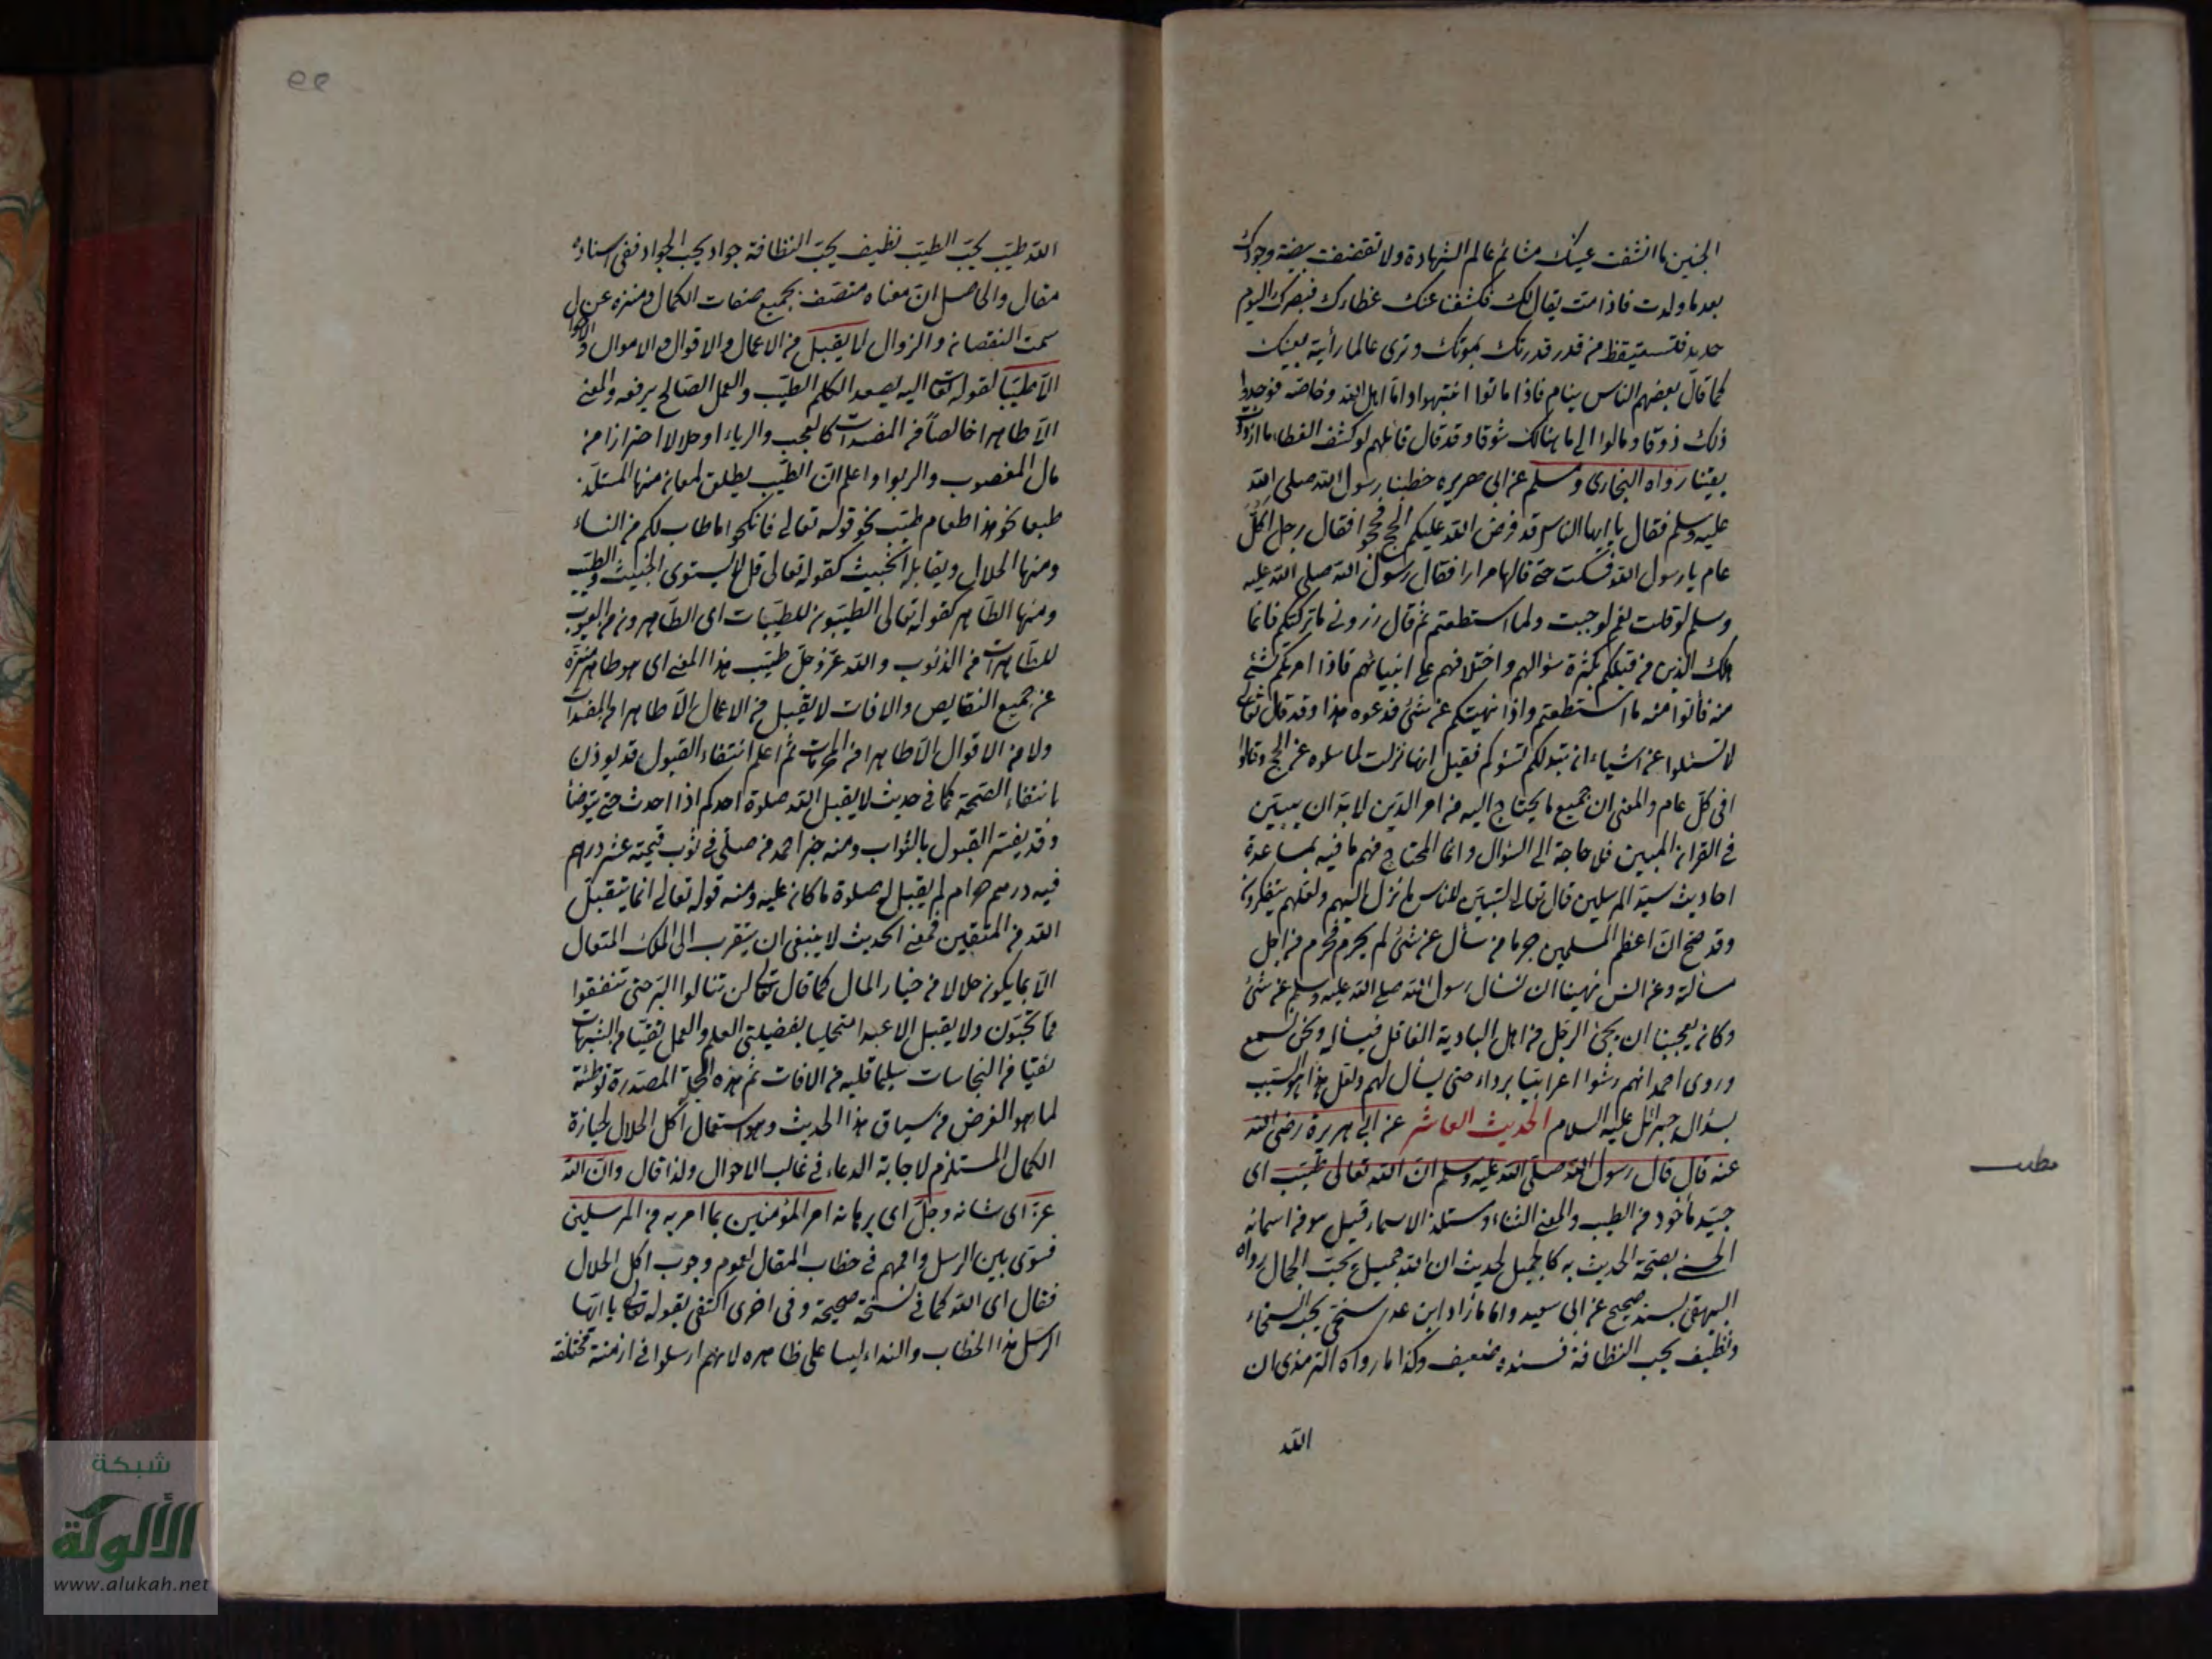 الجنين ما انشقت عينك مشائم عالم الشهادة ولا تقضقضت بيضة وجودك
بعد ما ولدت فاذا مت يقال لك فكشفنا عنك غطاءك فبصرك اليوم
حديد فتستيقظ من قدر قدرتك بموتك وترى عالما رأيته بعينك
كما قال بعضهم الناس نيام فاذا ماتوا انتبهوا واما اهل الله وخاصته فوجدوا
ذلك ذوقا ومالوا الى ما هنالك شوقا وقد قال قائلهم لو كشف الغطاء ما ازددت
يقينا رواه البخارى ومسلم عن ابى هريرة خطبنا رسول الله صلى الله
عليه وسلم فقال يا ايها الناس قد فرض الله عليكم الحج فحجوا فقال رجل اكل
عام يا رسول الله فسكت حتى قالها مرارا فقال رسول الله صلى الله عليه
وسلم لو قلت نعم لوجبت ولما استطعتم ثم قال ذرونى ما تركتكم فانما
هلك الذين من قبلكم بكثرة سؤالهم واختلافهم على انبيائهم فاذا امرتكم بشئ
منه فأتوا منه ما استطعتم واذا نهيتكم عن شئ فدعوه هذا وقد قال تعالى
لا تسئلوا عن اشياء ان تبد لكم تسؤكم فقيل انها نزلت لما سألوه عن الحج وقالوا
افى كل عام والمعنى ان جميع ما يحتاج اليه من امر الدين لا بد ان يبين
فى القران المبين فلا حاجة الى السؤال وانما المحتاج فهم ما فيه بمساعدة
احاديث سيد المرسلين قال تعالى لتبين للناس ما نزل اليهم ولعلهم يتفكرون
وقد صح ان اعظم المسلمين جرما من سأل عن شئ لم يحرم فحرم من اجل
مسألته وعن انس نهينا ان نسأل رسول الله صلى الله عليه وسلم عن شئ
وكان يعجبنا ان يجئ الرجل من اهل البادية الغافل فيسأله ونحن نسمع
وروى احمد انهم رشوا اعرابيا برداء حتى يسأل لهم ولعل هذا هو السبب
بسؤال جبرائل عليه السلام الحديث العاشر عن ابى هريرة رضى الله
عنه قال قال رسول الله صلى الله عليه وسلم ان الله تعالى طيب اى
جيد مأخوذ من الطيب والمعنى الثناء ومستلذ الاسماء قيل هو من اسمائه
الحسنى بصحة الحديث به كالجميل لحديث ان الله جميل يحب الجمال رواه
البيهقى بسند صحيح عن ابى سعيد واما ما زاد ابن عدى سخى يحب السخاء
ونظيف يحب النظافة فسنده ضعيف وكذا ما رواه الترمذى ان
الله
مطلب
الله طيب يحب الطيب نظيف يحب النظافة جواد يحب الجواد ففى اسناده
مقال والحاصل ان معناه متصف بجميع صفات الكمال ومنزه عن
سمت النقصان والزوال لا يقبل من الاعمال والاقوال والاموال
الا طيبا لقوله تعالى اليه يصعد الكلم الطيب والعمل الصالح يرفعه والمعنى
الا طاهرا خالصا من المفسدات كالعجب والرياء او حلالا احترازا من
مال المغصوب والربوا واعلم ان الطيب يطلق لمعان منها المستلذ
طبعا نحو هذا طعام طيب نحو قوله تعالى فانكحوا ما طاب لكم من النساء
ومنها الحلال ويقابله الخبيث كقوله تعالى قل لا يستوى الخبيث والطيب
ومنها الطاهر كقوله تعالى الطيبون للطيبات اى الطاهرون من العيوب
للطاهرات من الذنوب والله عز وجل طيب بهذا المعنى اى هو طاهر منزه
عن جميع النقايص والافات لا يقبل من الاعمال الا طاهرا من المفسدات
ولا من الاقوال الا طاهرا من المحرمات ثم اعلم انتفاء القبول قد يوذن
بانتفاء الصحة كما فى حديث لا يقبل الله صلوة احدكم اذا احدث حتى يتوضأ
وقد يفسر القبول بالثواب ومنه خبر احمد من صلى فى ثوب قيمته عشر دراهم
فيه درهم حرام لم يقبل له صلوة ما كان عليه ومنه قوله تعالى انما يتقبل
الله من المتقين فمعنى الحديث لا ينبغى ان يتقرب الى الملك المتعال
الا بما يكون حلالا من خيار المال كما قال تعالى لن تنالوا البر حتى تنفقوا
مما تحبون ولا يقبل الا عبدا متحليا بفضيلتى العلم والعمل تقيا من الشبهات
نقيا من النجاسات سليما قلبه من الافات ثم هذه الجملة المصدرة توطئة
لما هو الغرض من سياق هذا الحديث وهو استعمال اكل الحلال لحيازة
الكمال المستلزم لاجابة الدعاء فى غالب الاحوال ولذا قال وان الله
عز اى شانه وجل اى برهانه امر المؤمنين بما امر به المرسلين
فسوى بين الرسل واممهم فى خطاب المقال لعموم وجوب اكل الحلال
فقال اى الله كما فى نسخة صحيحة وفى اخرى اكتفى بقوله تعالى يا ايها
الرسل هذا الخطاب والنداء ليسا على ظاهره لانهم ارسلوا فى ازمنة مختلفة
شبكة
الألوكة
www.alukah.net